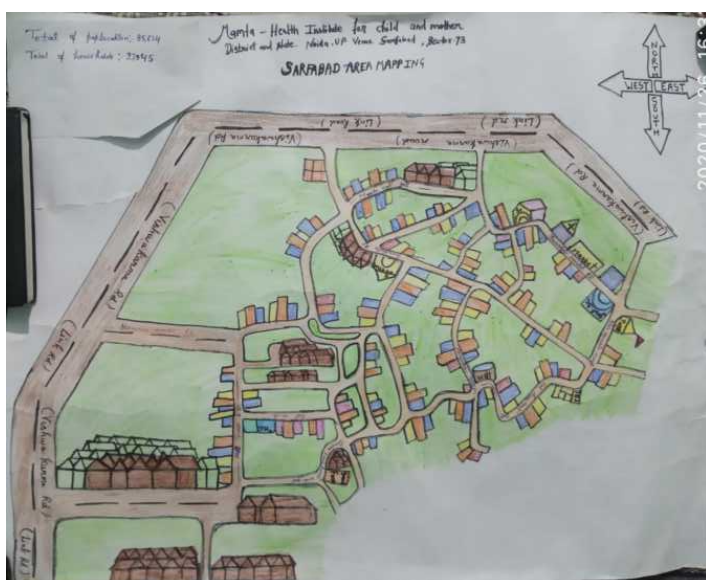 Total of population:- 35,614
Total of households:- 22945
Mamta - Health Institute for child and mother
District and state Noida, UP Venue Sarfabad, Sector 73
SARFABAD AREA MAPPING
NORTH
WEST EAST
SOUTH
2020/11/26 16:2
(Vishwakarma Rd)
(Link Road)
Vishwakarma road
(Link rd)
Vishwakarma Rd)
(Link Rd)
Vishwakarma Rd)
(Vishwakarma Rd)
(Link Rd)
(Vishwakarma Rd)
(Link Rd)